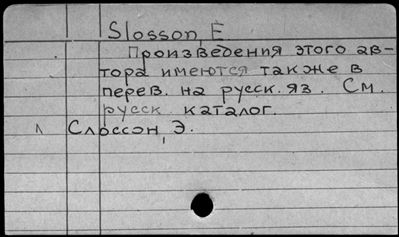 Slosson, E
Произведения этого ав-
тора имеются также в
перев. на русск. яз. См.
русск каталог.
Слоссон, Э.